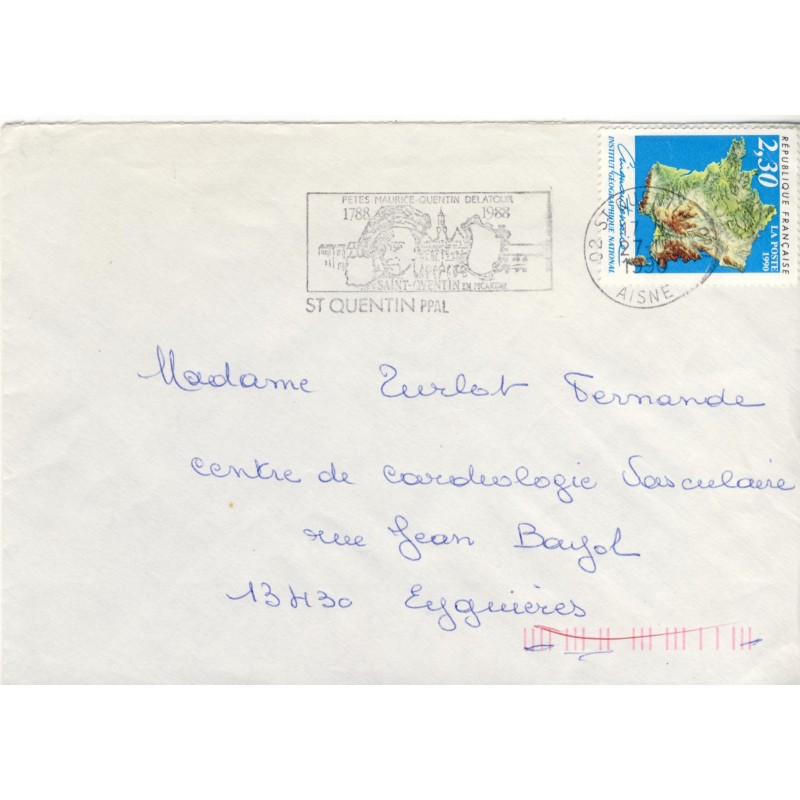 FETES MAURICE-QUENTIN DELATOUR
1788 1988
SAINT-QUENTIN EN PICARDIE
ST QUENTIN PPAL
02 ST
1990
AISNE
RÉPUBLIQUE FRANÇAISE
2,30
LA POSTE
1990
INSTITUT GÉOGRAPHIQUE NATIONAL
Madame Turlot Fernande
centre de cardiologie Vasculaire
rue Jean Bayol
13430 Eyguières